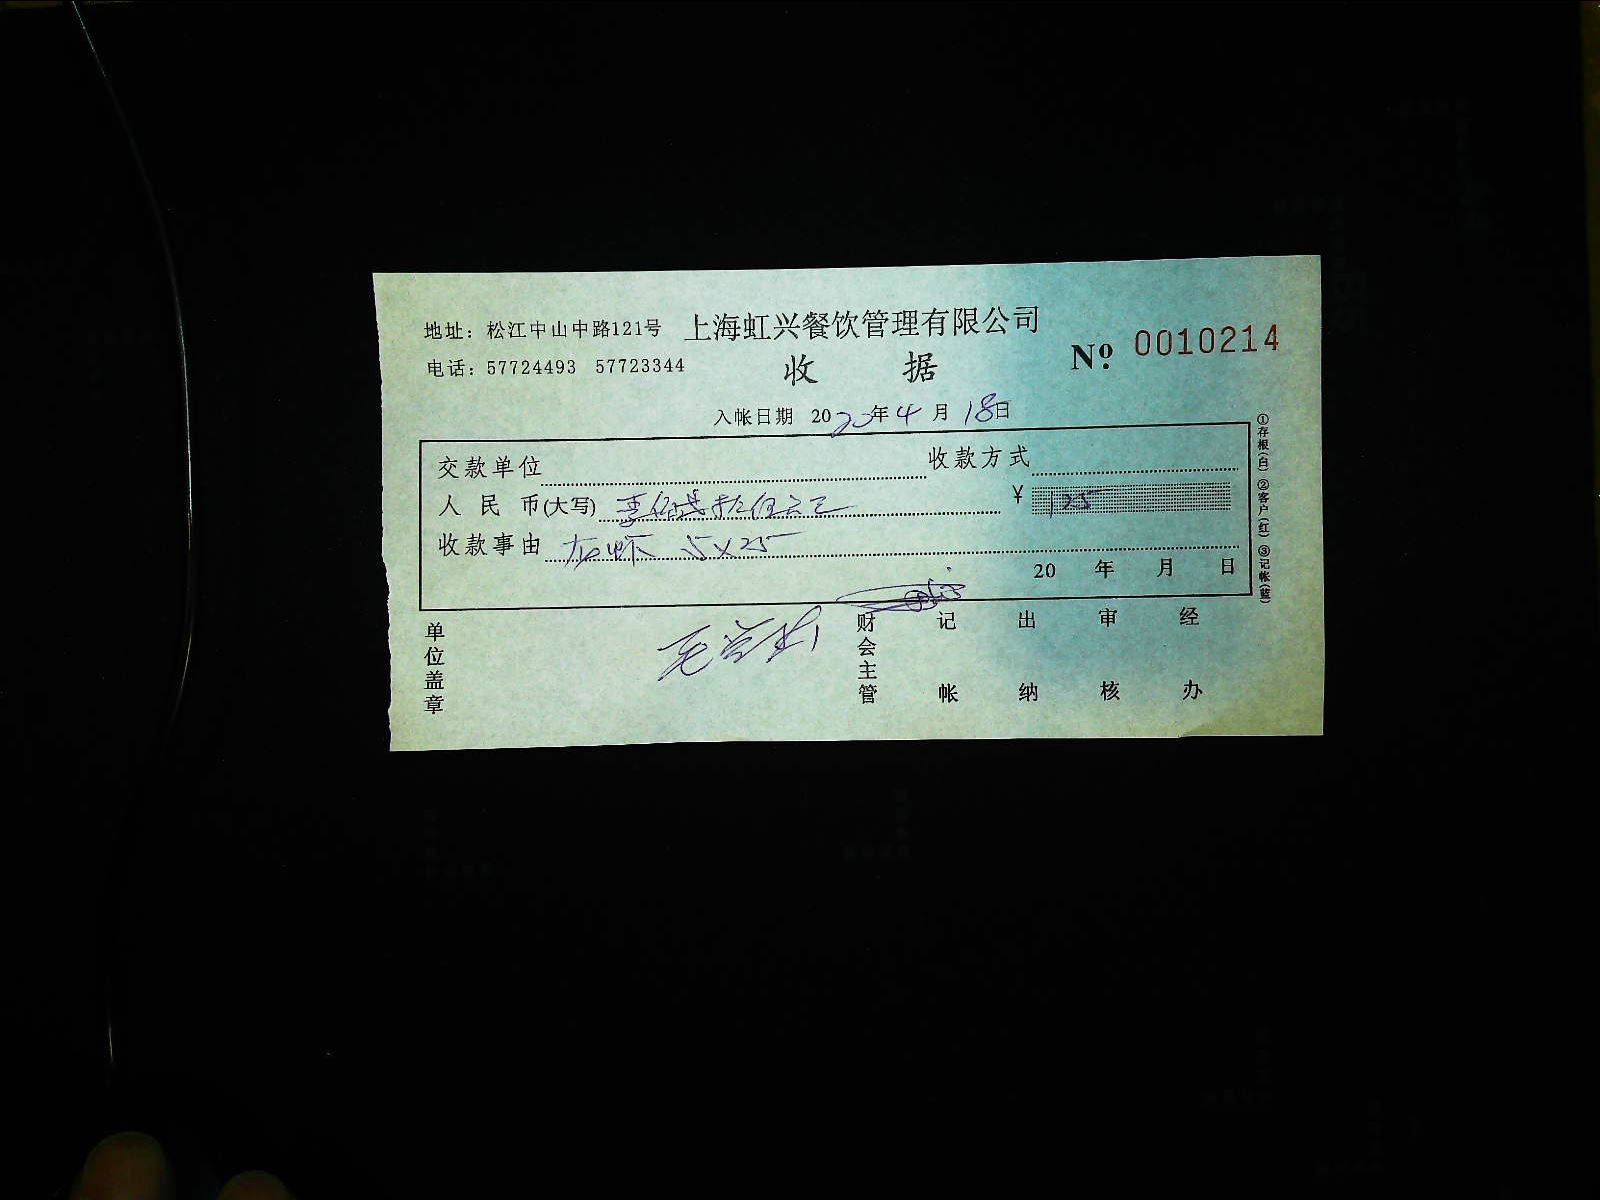 地址：松江中山中路121号 上海虹兴餐饮管理有限公司
电话：57724493 57723344 收据 Nº. 0010214
入帐日期 2020年4月18日
交款单位 收款方式
人民币(大写) ¥ 125
收款事由 虾 5×25
20 年 月 日
①存根(白) ②客户(红) ③记帐(蓝)
单位盖章 财会主管 记帐 出纳 审核 经办